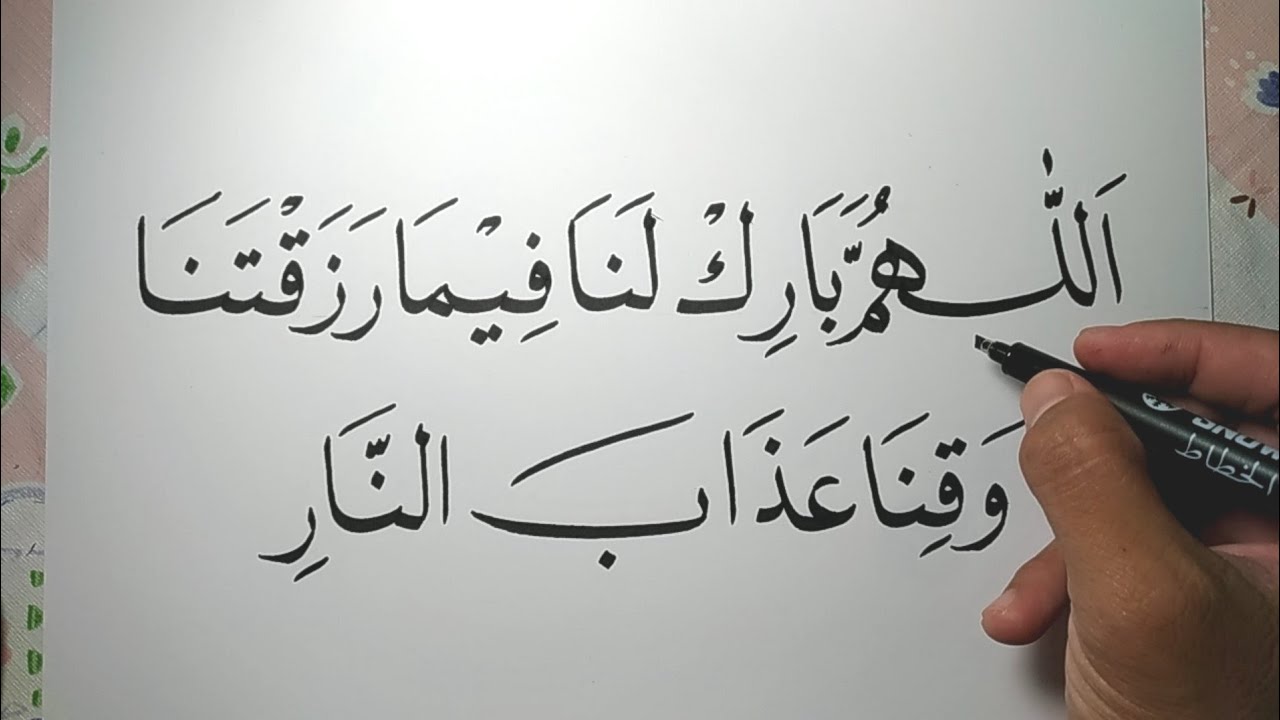 اَللّٰهُمَّ بَارِكْ لَنَا فِيْمَا رَزَقْتَنَا
وَقِنَا عَذَابَ النَّارِ
SNOW
الخطاط